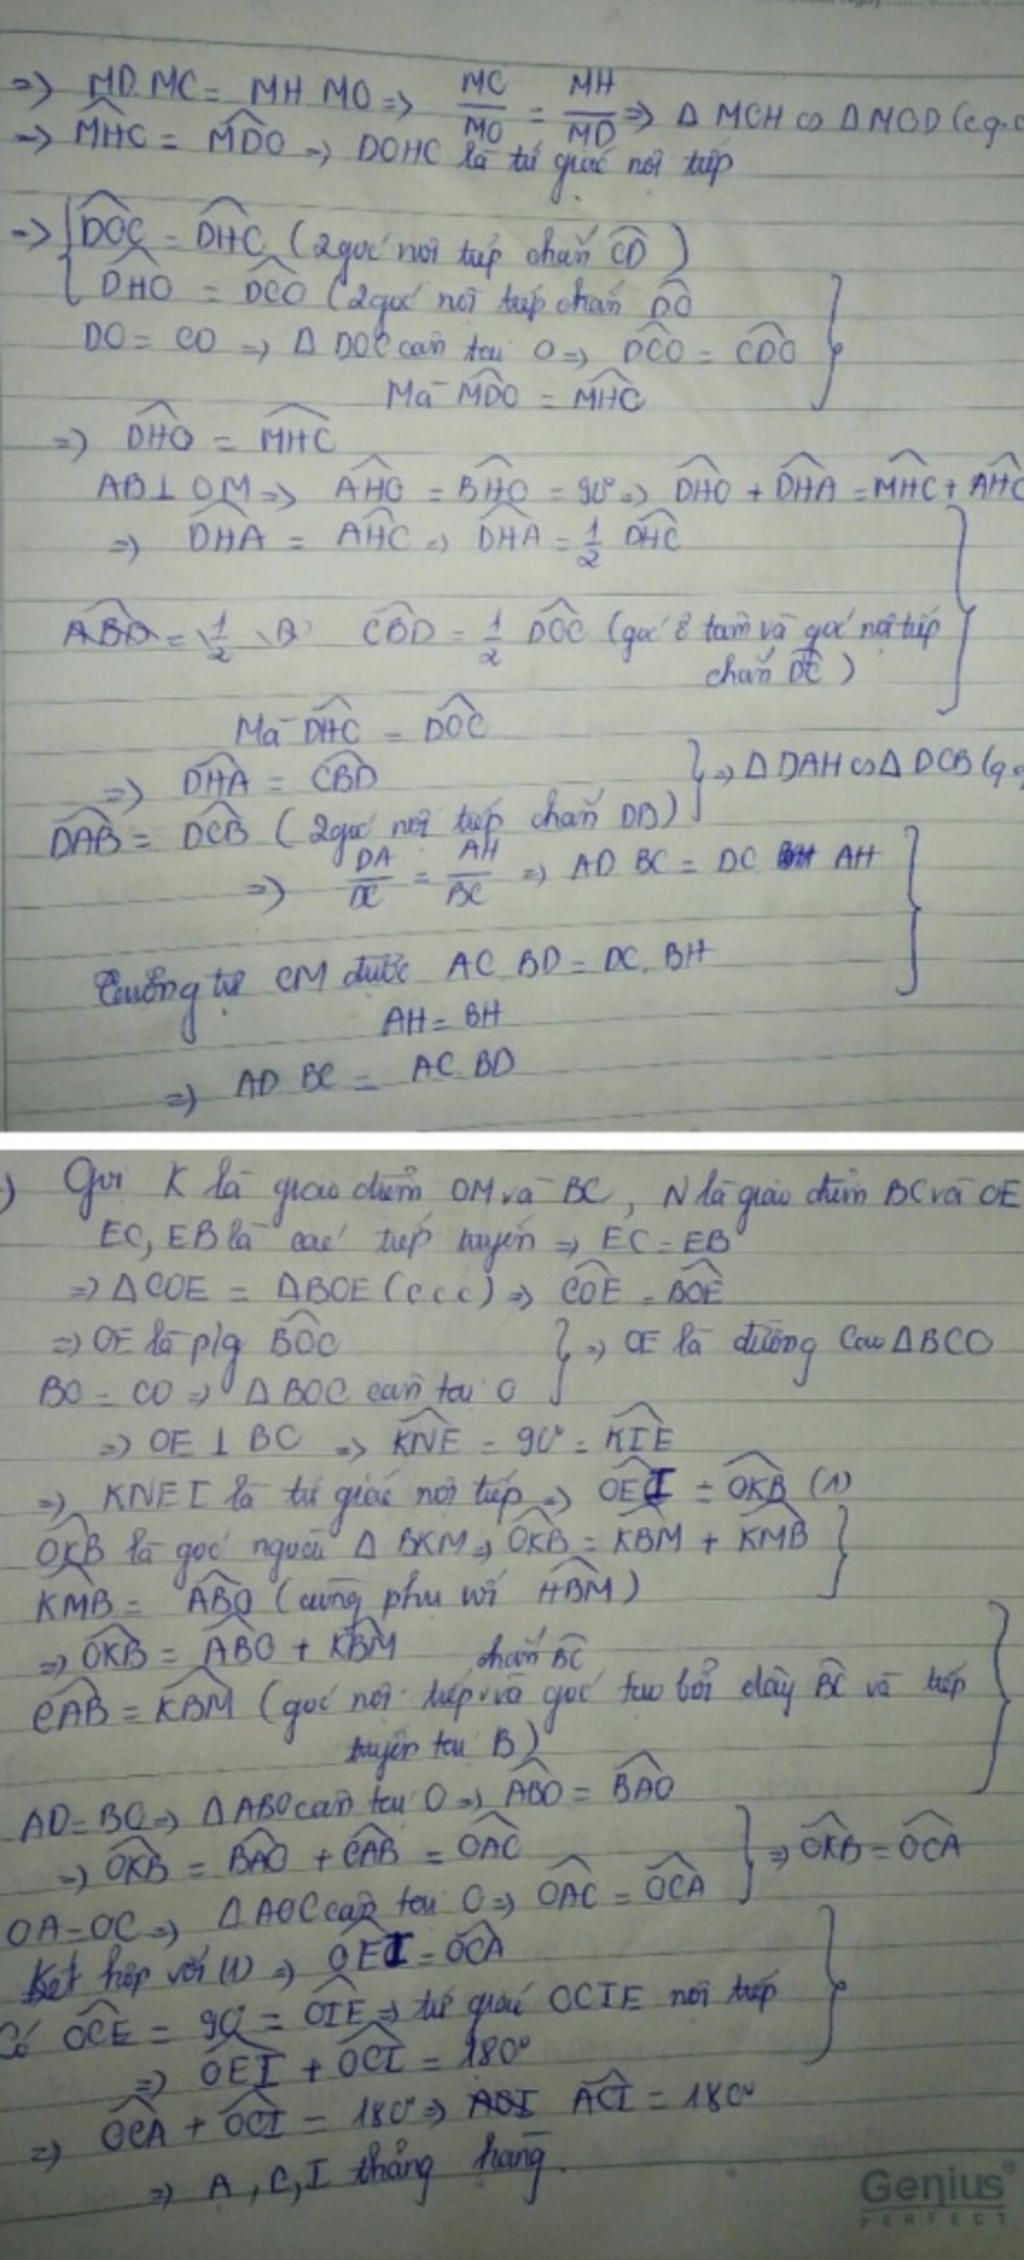 => MD.MC = MH MO => MC/MO = MH/MD => Δ MCH ∽ Δ MOD (c.g.c
=> MHC = MDO => DOHC là tứ giác nội tiếp
=> { DOC = DHC (2 góc nội tiếp chắn CD)
DHO = DCO (2 góc nội tiếp chắn DO
DO = CO => Δ DOC cân tại O => DCO = CDO
Mà MDO = MHC
=> DHO = MHC
AB ⊥ OM => AHO = BHO = 90° => DHO + DHA = MHC + AHC
=> DHA = AHC => DHA = 1/2 DHC
CBD = 1/2 DOC (góc ở tâm và góc nội tiếp
chắn DC)
Mà DHC = DOC
=> DHA = CBD
} => Δ DAH ∽ Δ DCB (g.g
DAB = DCB (2 góc nội tiếp chắn DB)
=> DA/DC = AH/BC => AD BC = DC AH
Tương tự CM được AC BD = DC. BH
AH = BH
=> AD BC = AC BD
) Gọi K là giao điểm OM và BC, N là giao điểm BC và OE
EC, EB là các tiếp tuyến => EC = EB
=> Δ COE = Δ BOE (c c c) => COE = BOE
=> OE là p/g BOC } => OE là đường cao Δ BCO
BO = CO => Δ BOC cân tại O
=> OE ⊥ BC => KNE = 90° = KIE
=> KNEI là tứ giác nội tiếp => OEI = OKB (1)
OKB là góc ngoài Δ BKM => OKB = KBM + KMB
KMB = ABO (cùng phụ với HBM)
=> OKB = ABO + KBM chắn BC
CAB = KBM (góc nội tiếp và góc tạo bởi dây BC và tiếp
tuyến tại B)
AO = BO => Δ ABO cân tại O => ABO = BAO
=> OKB = BAO + CAB = OAC } => OKB = OCA
OA = OC => Δ AOC cân tại O => OAC = OCA
Kết hợp với (1) => OEI = OCA
Có OCE = 90 = OIE => tứ giác OCIE nội tiếp
=> OEI + OCI = 180°
=> OCA + OCI = 180° => ACI = 180°
=> A, C, I thẳng hàng.
Genius®
PERFECT